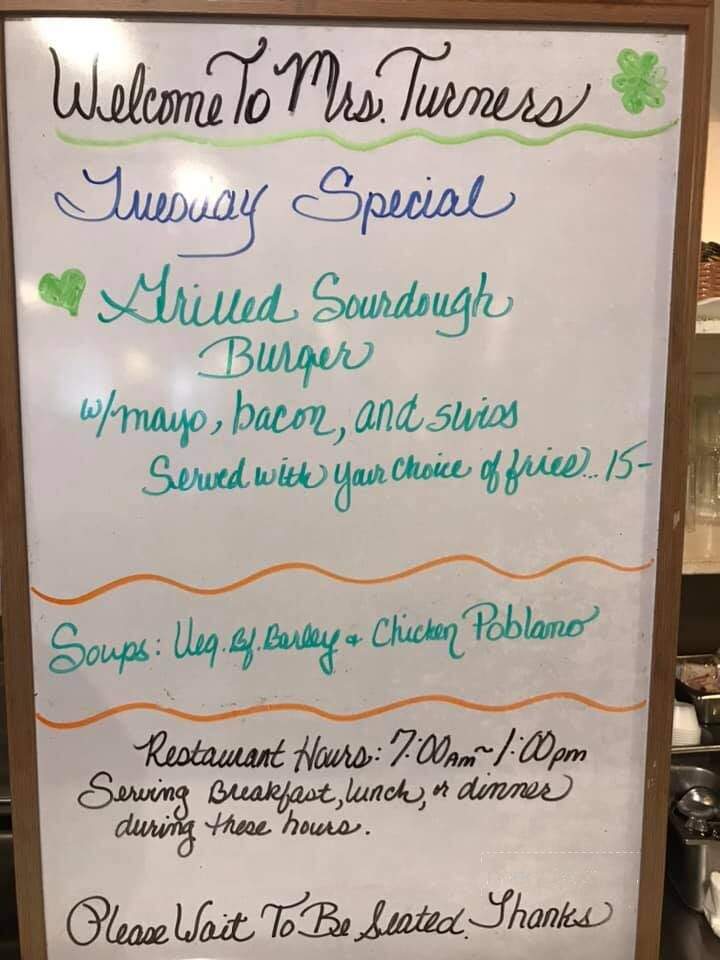 Welcome To Mrs. Turners
Tuesday Special
Grilled Sourdough
Burger
w/mayo, bacon, and swiss
Served with your choice of fries... 15-
Soups: Veg. Bf. Barley & Chicken Poblano
Restaurant Hours: 7:00Am~1:00pm
Serving Breakfast, lunch, or dinner
during these hours.
Please Wait To Be Seated. Thanks